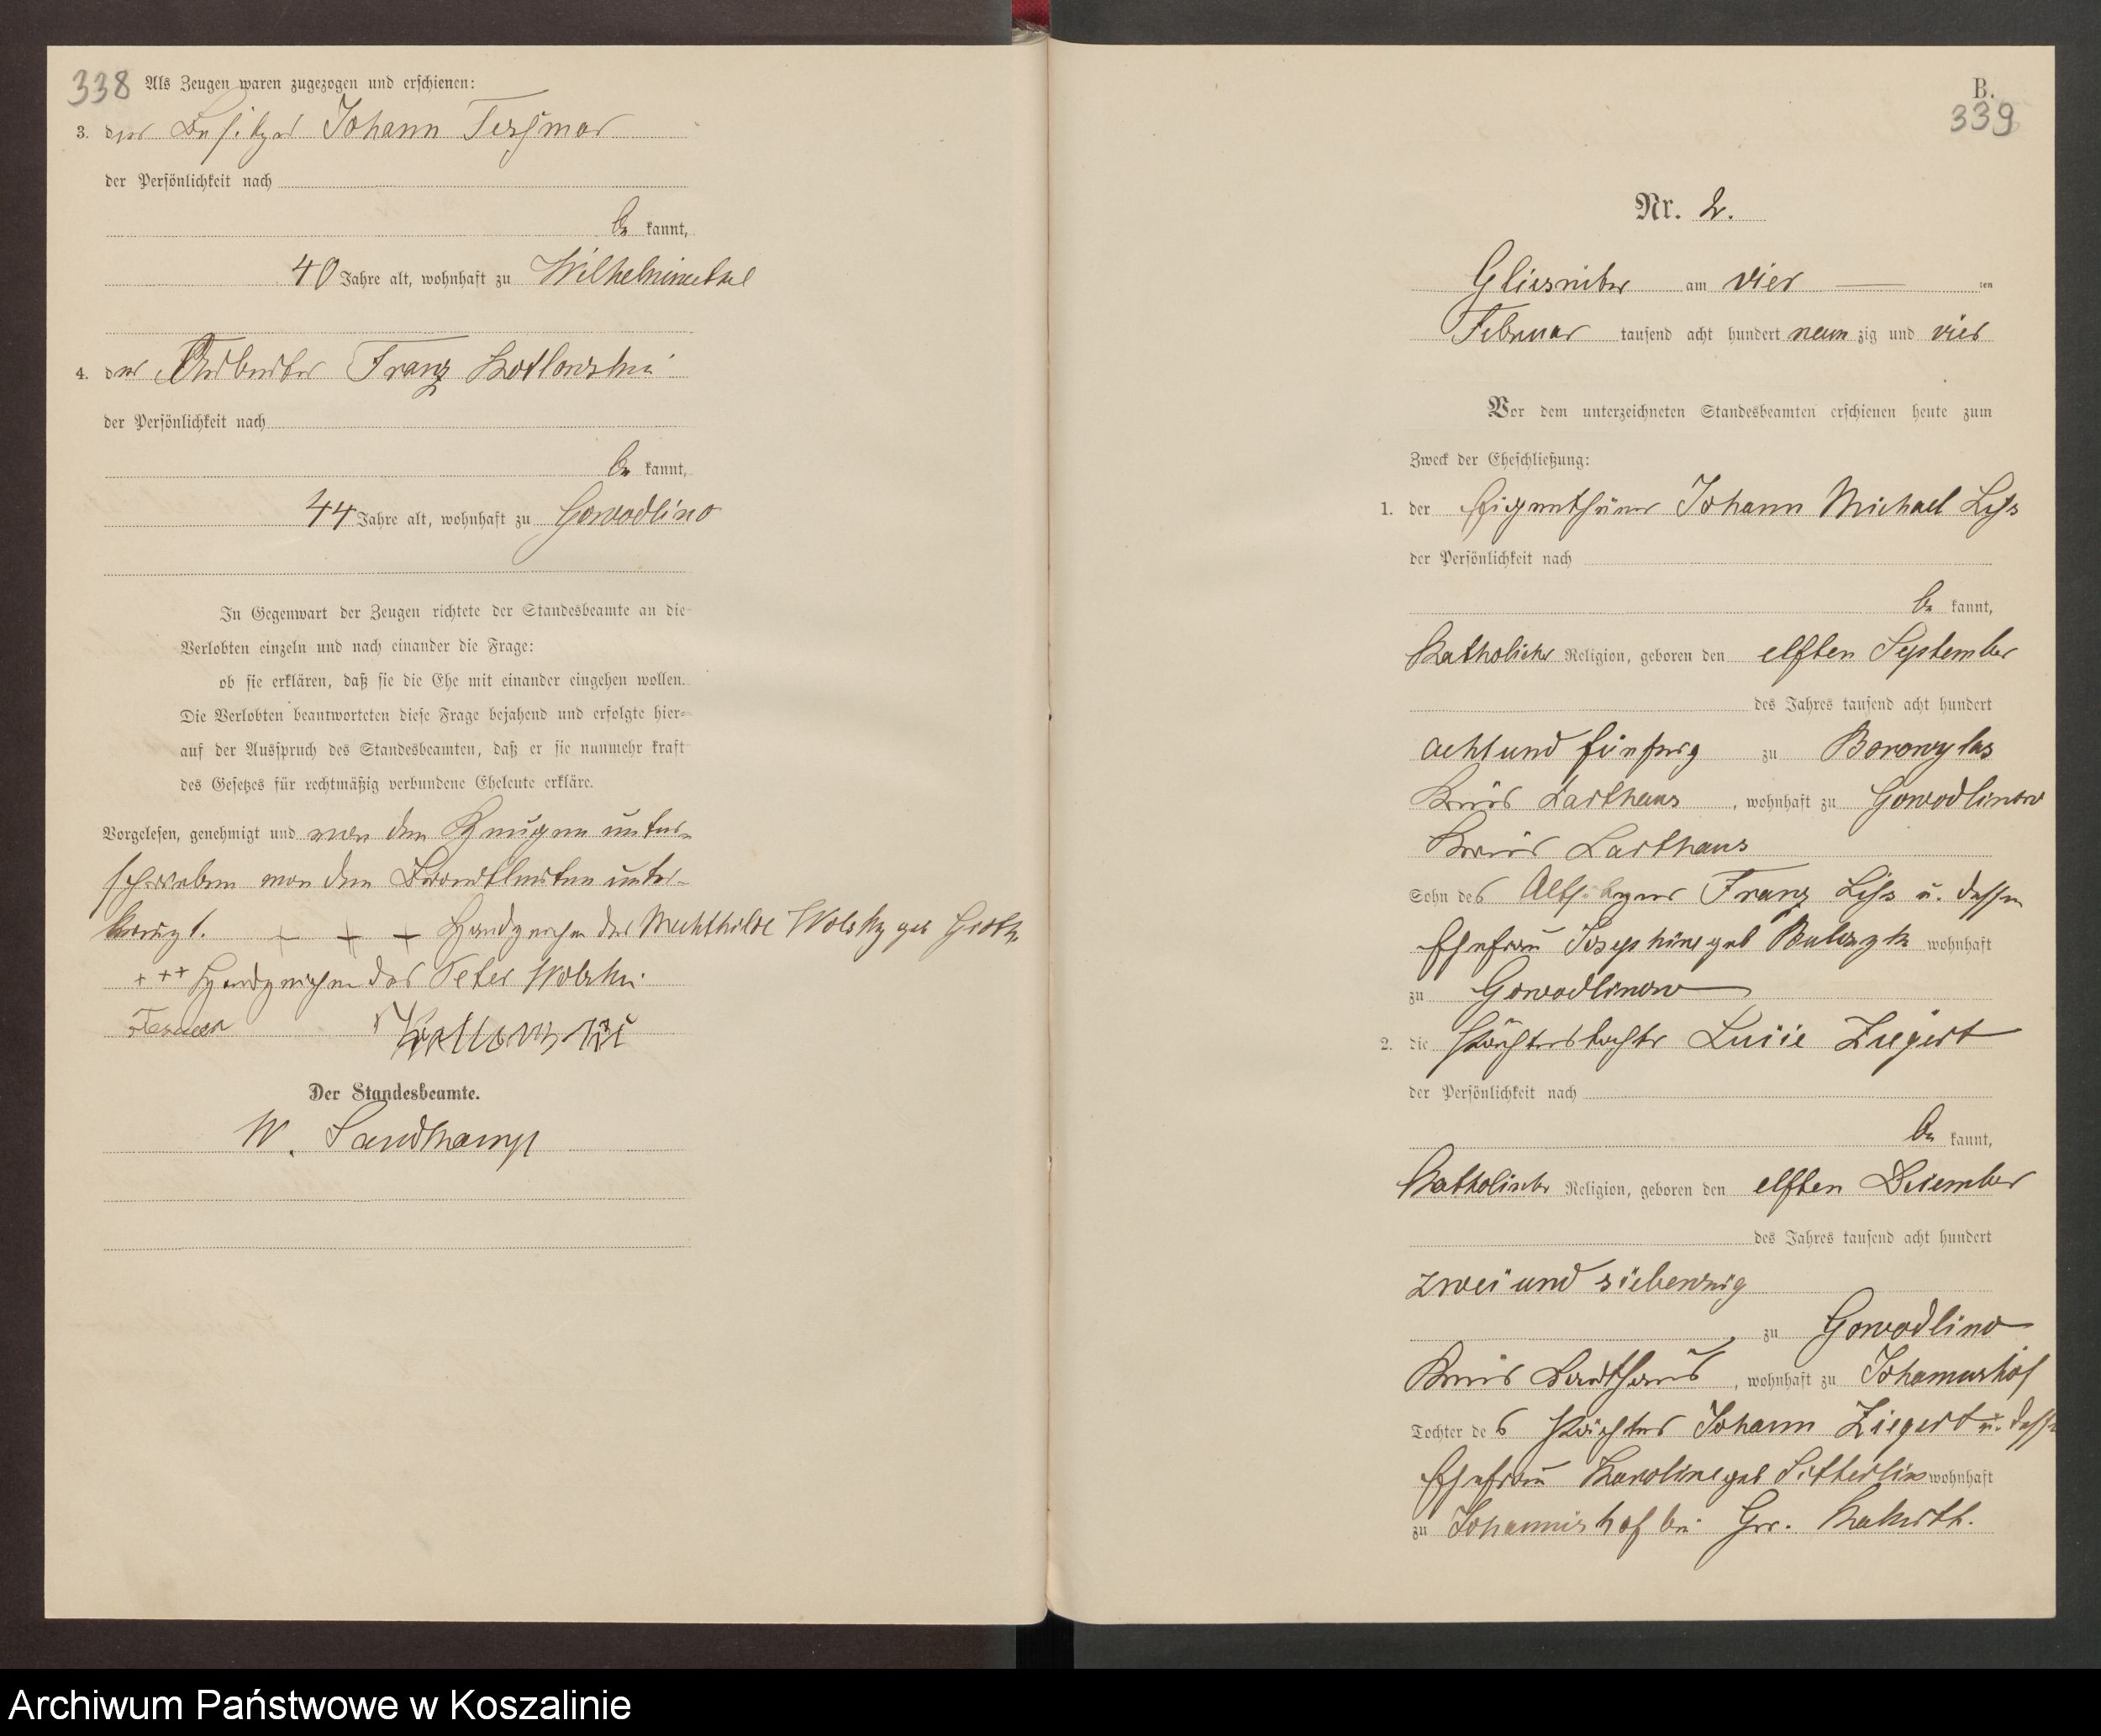 338 Als Zeugen waren zugezogen und erschienen:
3. der Besitzer Johann
der Persönlichkeit nach
be kannt,
40 Jahre alt, wohnhaft zu
4. der Arbeiter Franz Kotlowski
der Persönlichkeit nach
be kannt,
44 Jahre alt, wohnhaft zu Gowodlino
In Gegenwart der Zeugen richtete der Standesbeamte an die
Verlobten einzeln und nach einander die Frage:
ob sie erklären, daß sie die Ehe mit einander eingehen wollen.
Die Verlobten beantworteten diese Frage bejahend und erfolgte hier-
auf der Ausspruch des Standesbeamten, daß er sie nunmehr kraft
des Gesetzes für rechtmäßig verbundene Eheleute erkläre.
Vorgelesen, genehmigt und von den Zeugen unter-
schrieben von den Brautleuten unter-
kreuzt. + + + Handzeichen der Mechthilde Wolsky geb
+++ Handzeichen des Peter Wolski
Kotlowski
Der Standesbeamte.
W. Sandkamp
B.
339
Nr. 2.
am vier ten
Februar tausend acht hundert neun zig und vier
Vor dem unterzeichneten Standesbeamten erschienen heute zum
Zweck der Eheschließung:
1. der Eigenthümer Johann Michael Liss
der Persönlichkeit nach
be kannt,
Katholischer Religion, geboren den elften September
des Jahres tausend acht hundert
acht und fünfzig zu Borowylas
Kreis Carthaus, wohnhaft zu Gowodlinow
Kreis Carthaus
Sohn des Altsitzers Franz Liss u. dessen
Ehefrau Josephine geb wohnhaft
zu Gowodlinow
2. die Pächterstochter Lucie Ziegert
der Persönlichkeit nach
be kannt,
Katholischer Religion, geboren den elften December
des Jahres tausend acht hundert
zwei und siebenzig
zu Gowodlino
Kreis Carthaus, wohnhaft zu Johannishof
Tochter des Pächters Johann Ziegert u. dessen
Ehefrau Karoline geb wohnhaft
zu Johannishof bei Gr.
Archiwum Państwowe w Koszalinie